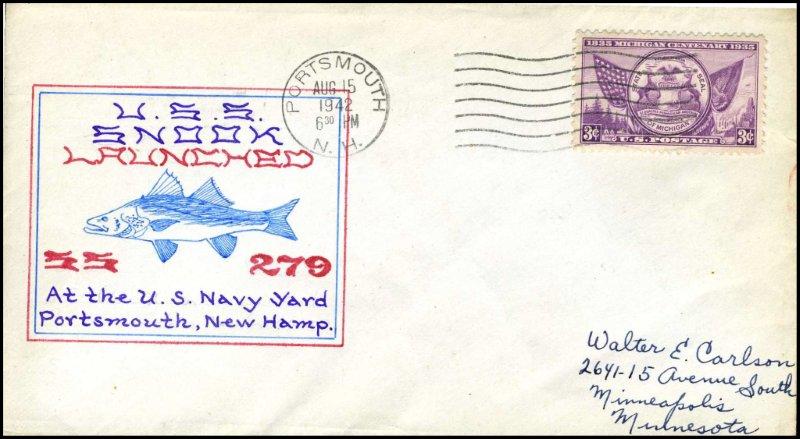 U.S.S.
SNOOK
LAUNCHED
SS 279
At the U.S. Navy Yard
Portsmouth, New Hamp.
PORTSMOUTH
AUG 15
1942
6 30 PM
N. H.
1835 MICHIGAN CENTENARY 1935
STATE SEAL
MICHIGAN
3¢ 3¢
U.S. POSTAGE
Walter E. Carlson
2641-15 Avenue South
Minneapolis
Minnesota